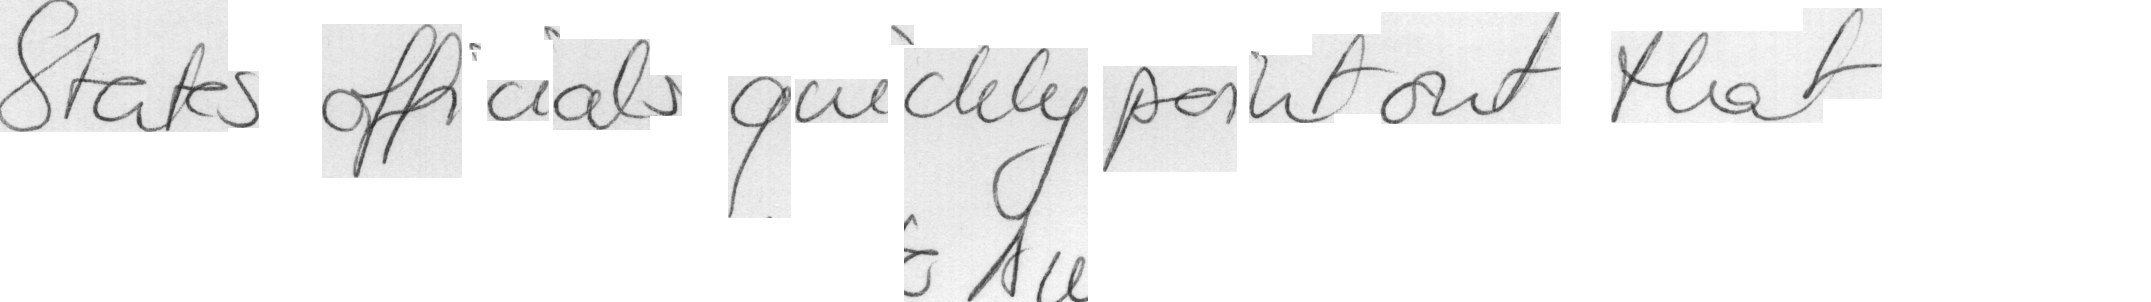 States officials quickly point out that